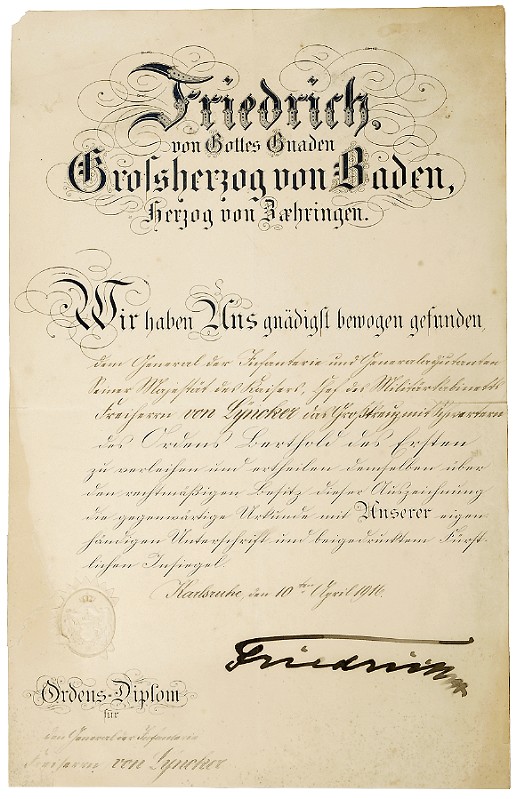 Friedrich,
von Gottes Gnaden
Grossherzog von Baden,
Herzog von Zæhringen.
Wir haben Uns gnädigst bewogen gefunden,
dem General der Infanterie und Generaladjutanten
Seiner Majestät des Kaisers, Chef des Militärkabinetts
Freiherrn von Lyncker das Großkreuz mit Schwertern
des Ordens Berthold des Ersten
zu verleihen und ertheilen demselben über
den rechtmäßigen Besitz dieser Auszeichnung
die gegenwärtige Urkunde mit Unserer eigen
händigen Unterschrift und beigedrucktem Fürst-
lichen Insiegel.
Karlsruhe, den 10ten April 1916.
Friedrich
Ordens-Diplom
für
den General der Infanterie
Freiherrn von Lyncker